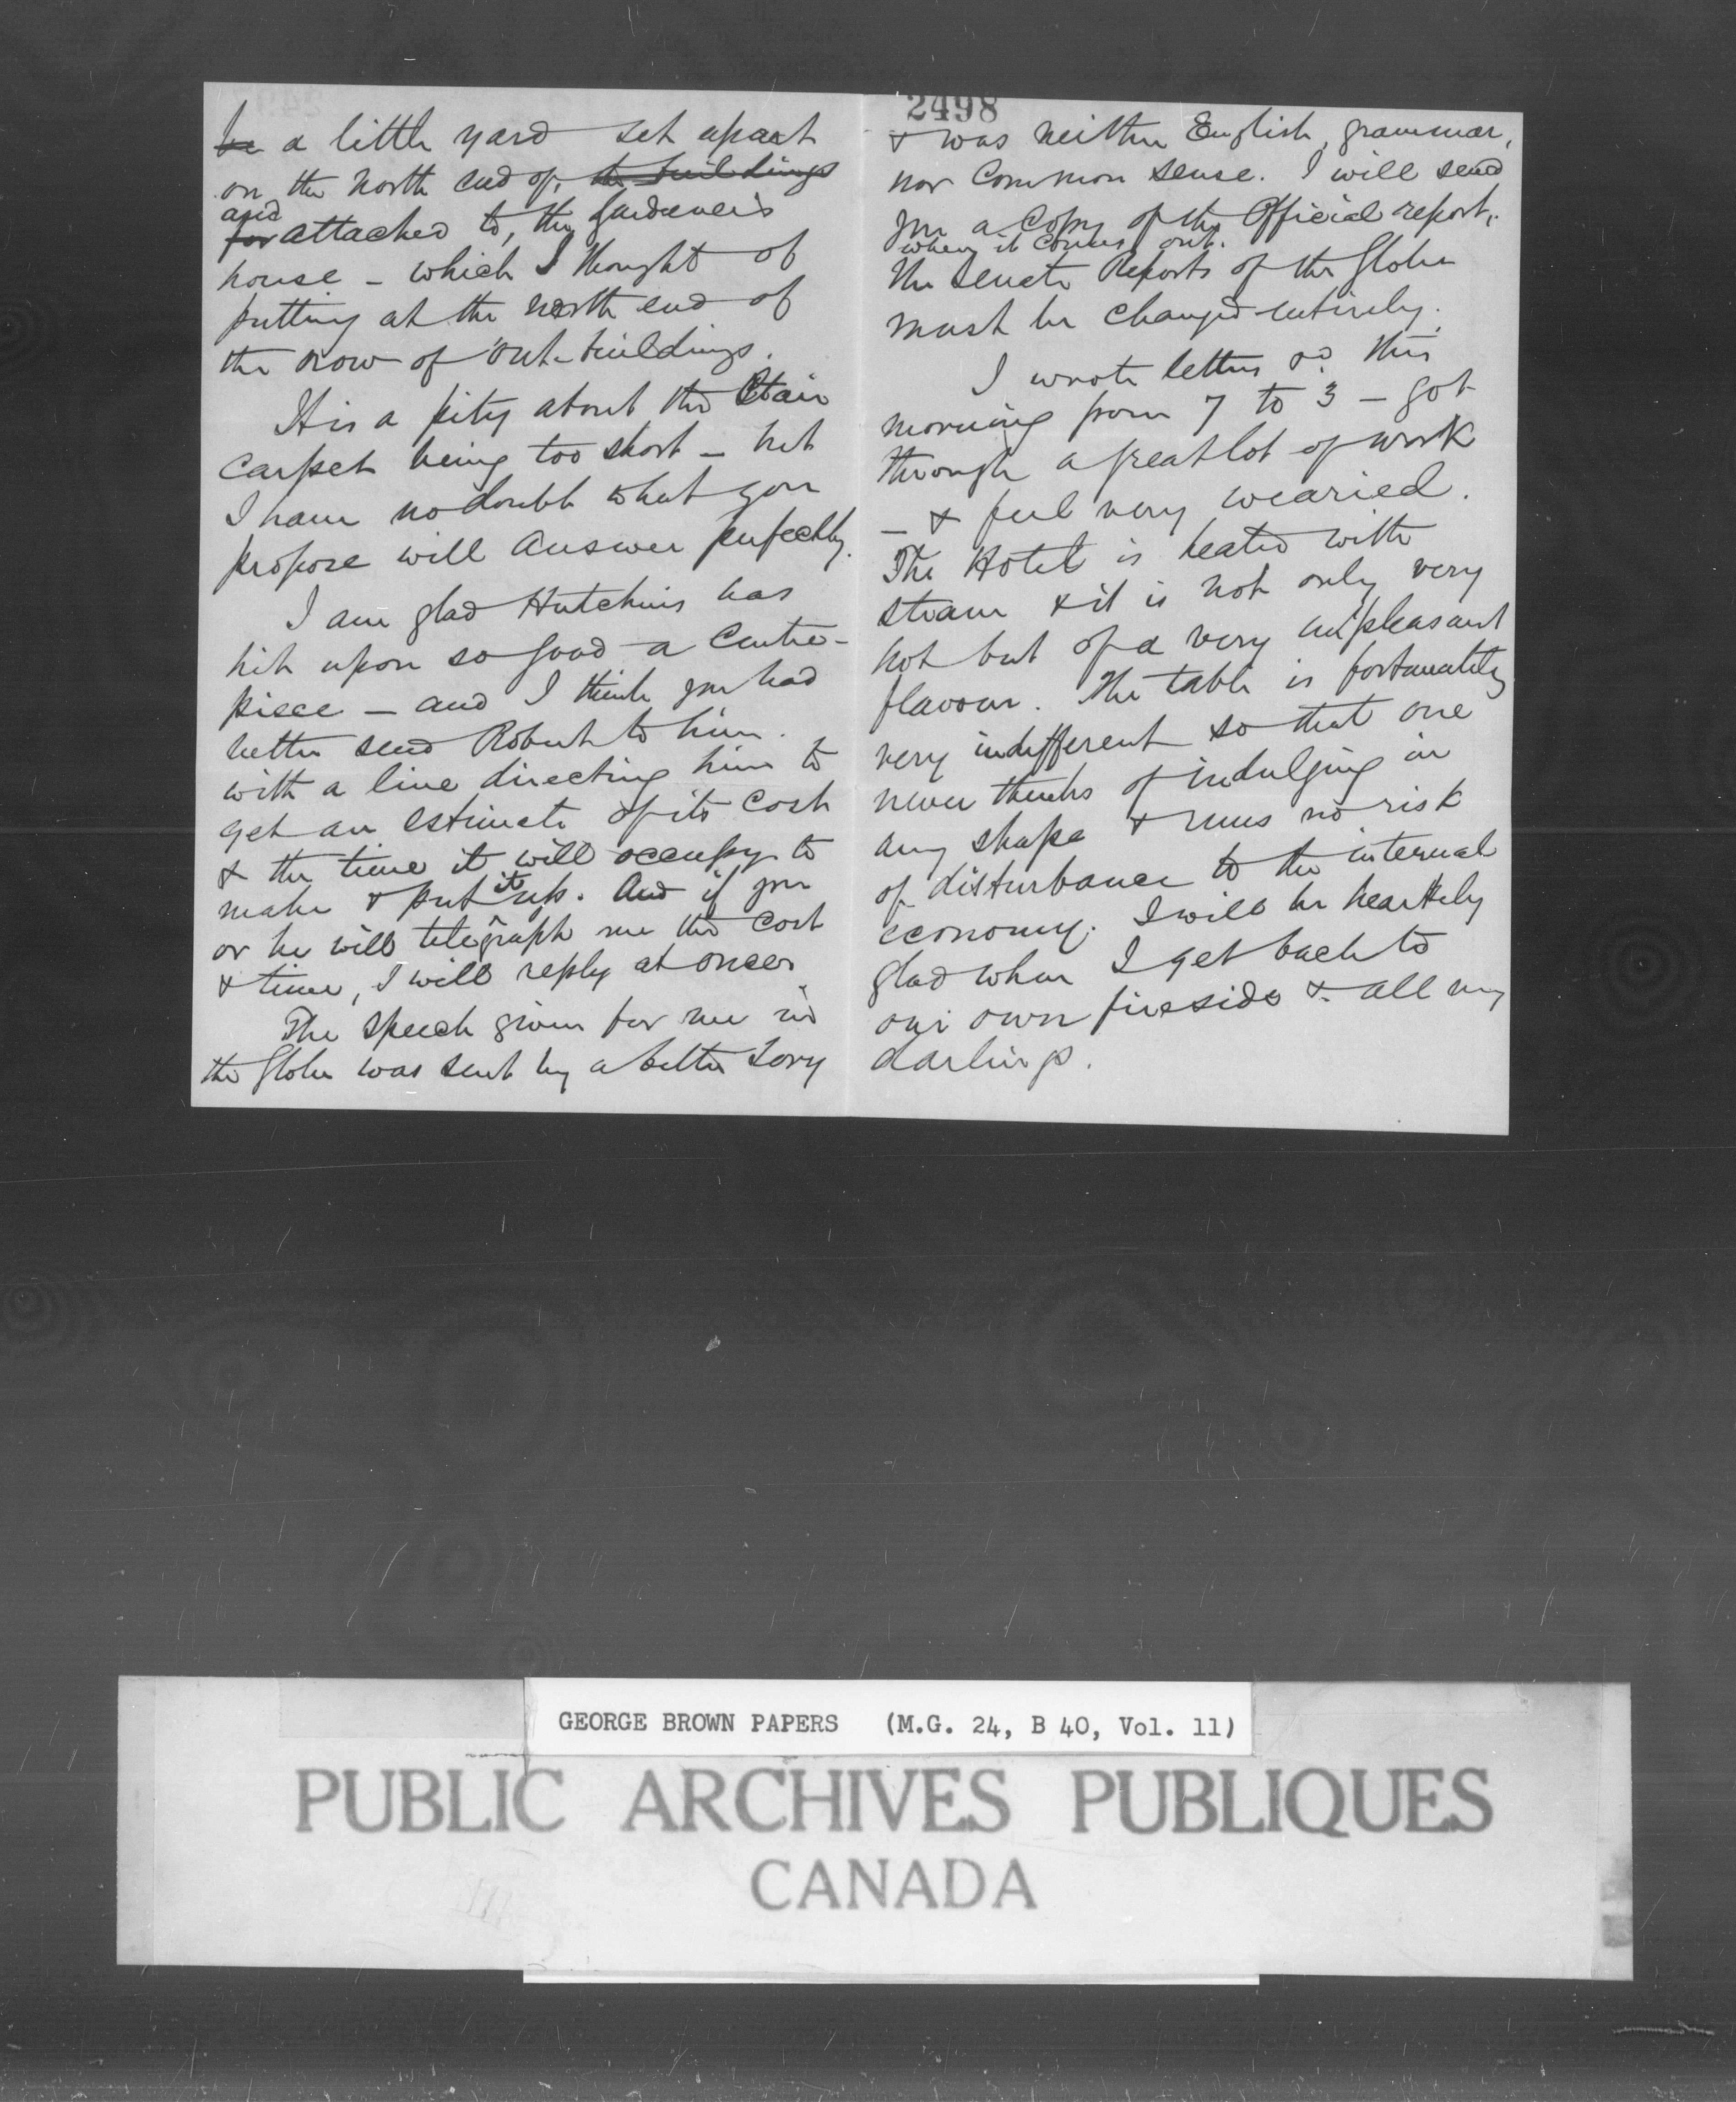 be a little yard set apart
on the north end of, the buildings
and
for attached to, the Gardener's
house - which I thought of
putting at the north end of
the row of out-buildings.
It is a pity about the Stair
carpet being too short - but
I have no doubt what you
propose will answer perfectly.
I am glad Hutchins has
hit upon so good a Centre-
piece - and I think you had
better send Robert to him.
with a line directing him to
get an estimate of its cost
& the time it will occupy to
make & put it up. And if you
or he will telegraph me the cost
& time, I will reply at once.
The speech given for me in
the Globe was sent by a bitter Tory
2498
& was neither English, grammar,
nor Common sense. I will send
you a Copy of the Official report,
when it comes out.
The Senate Reports of the Globe
must be changed entirely.
I wrote letters &c this
morning from 7 to 3 - got
through a great lot of work
- & feel very wearied.
The Hotel is heated with
steam & it is not only very
hot but of a very unpleasant
flavour. The table is fortunately
very indifferent so that one
never thinks of indulging in
any shape & runs no risk
of disturbance to the internal
economy. I will be heartily
glad when I get back to
our own fireside & all my
darlings.
GEORGE BROWN PAPERS (M.G. 24, B 40, Vol. 11)
PUBLIC ARCHIVES PUBLIQUES
CANADA